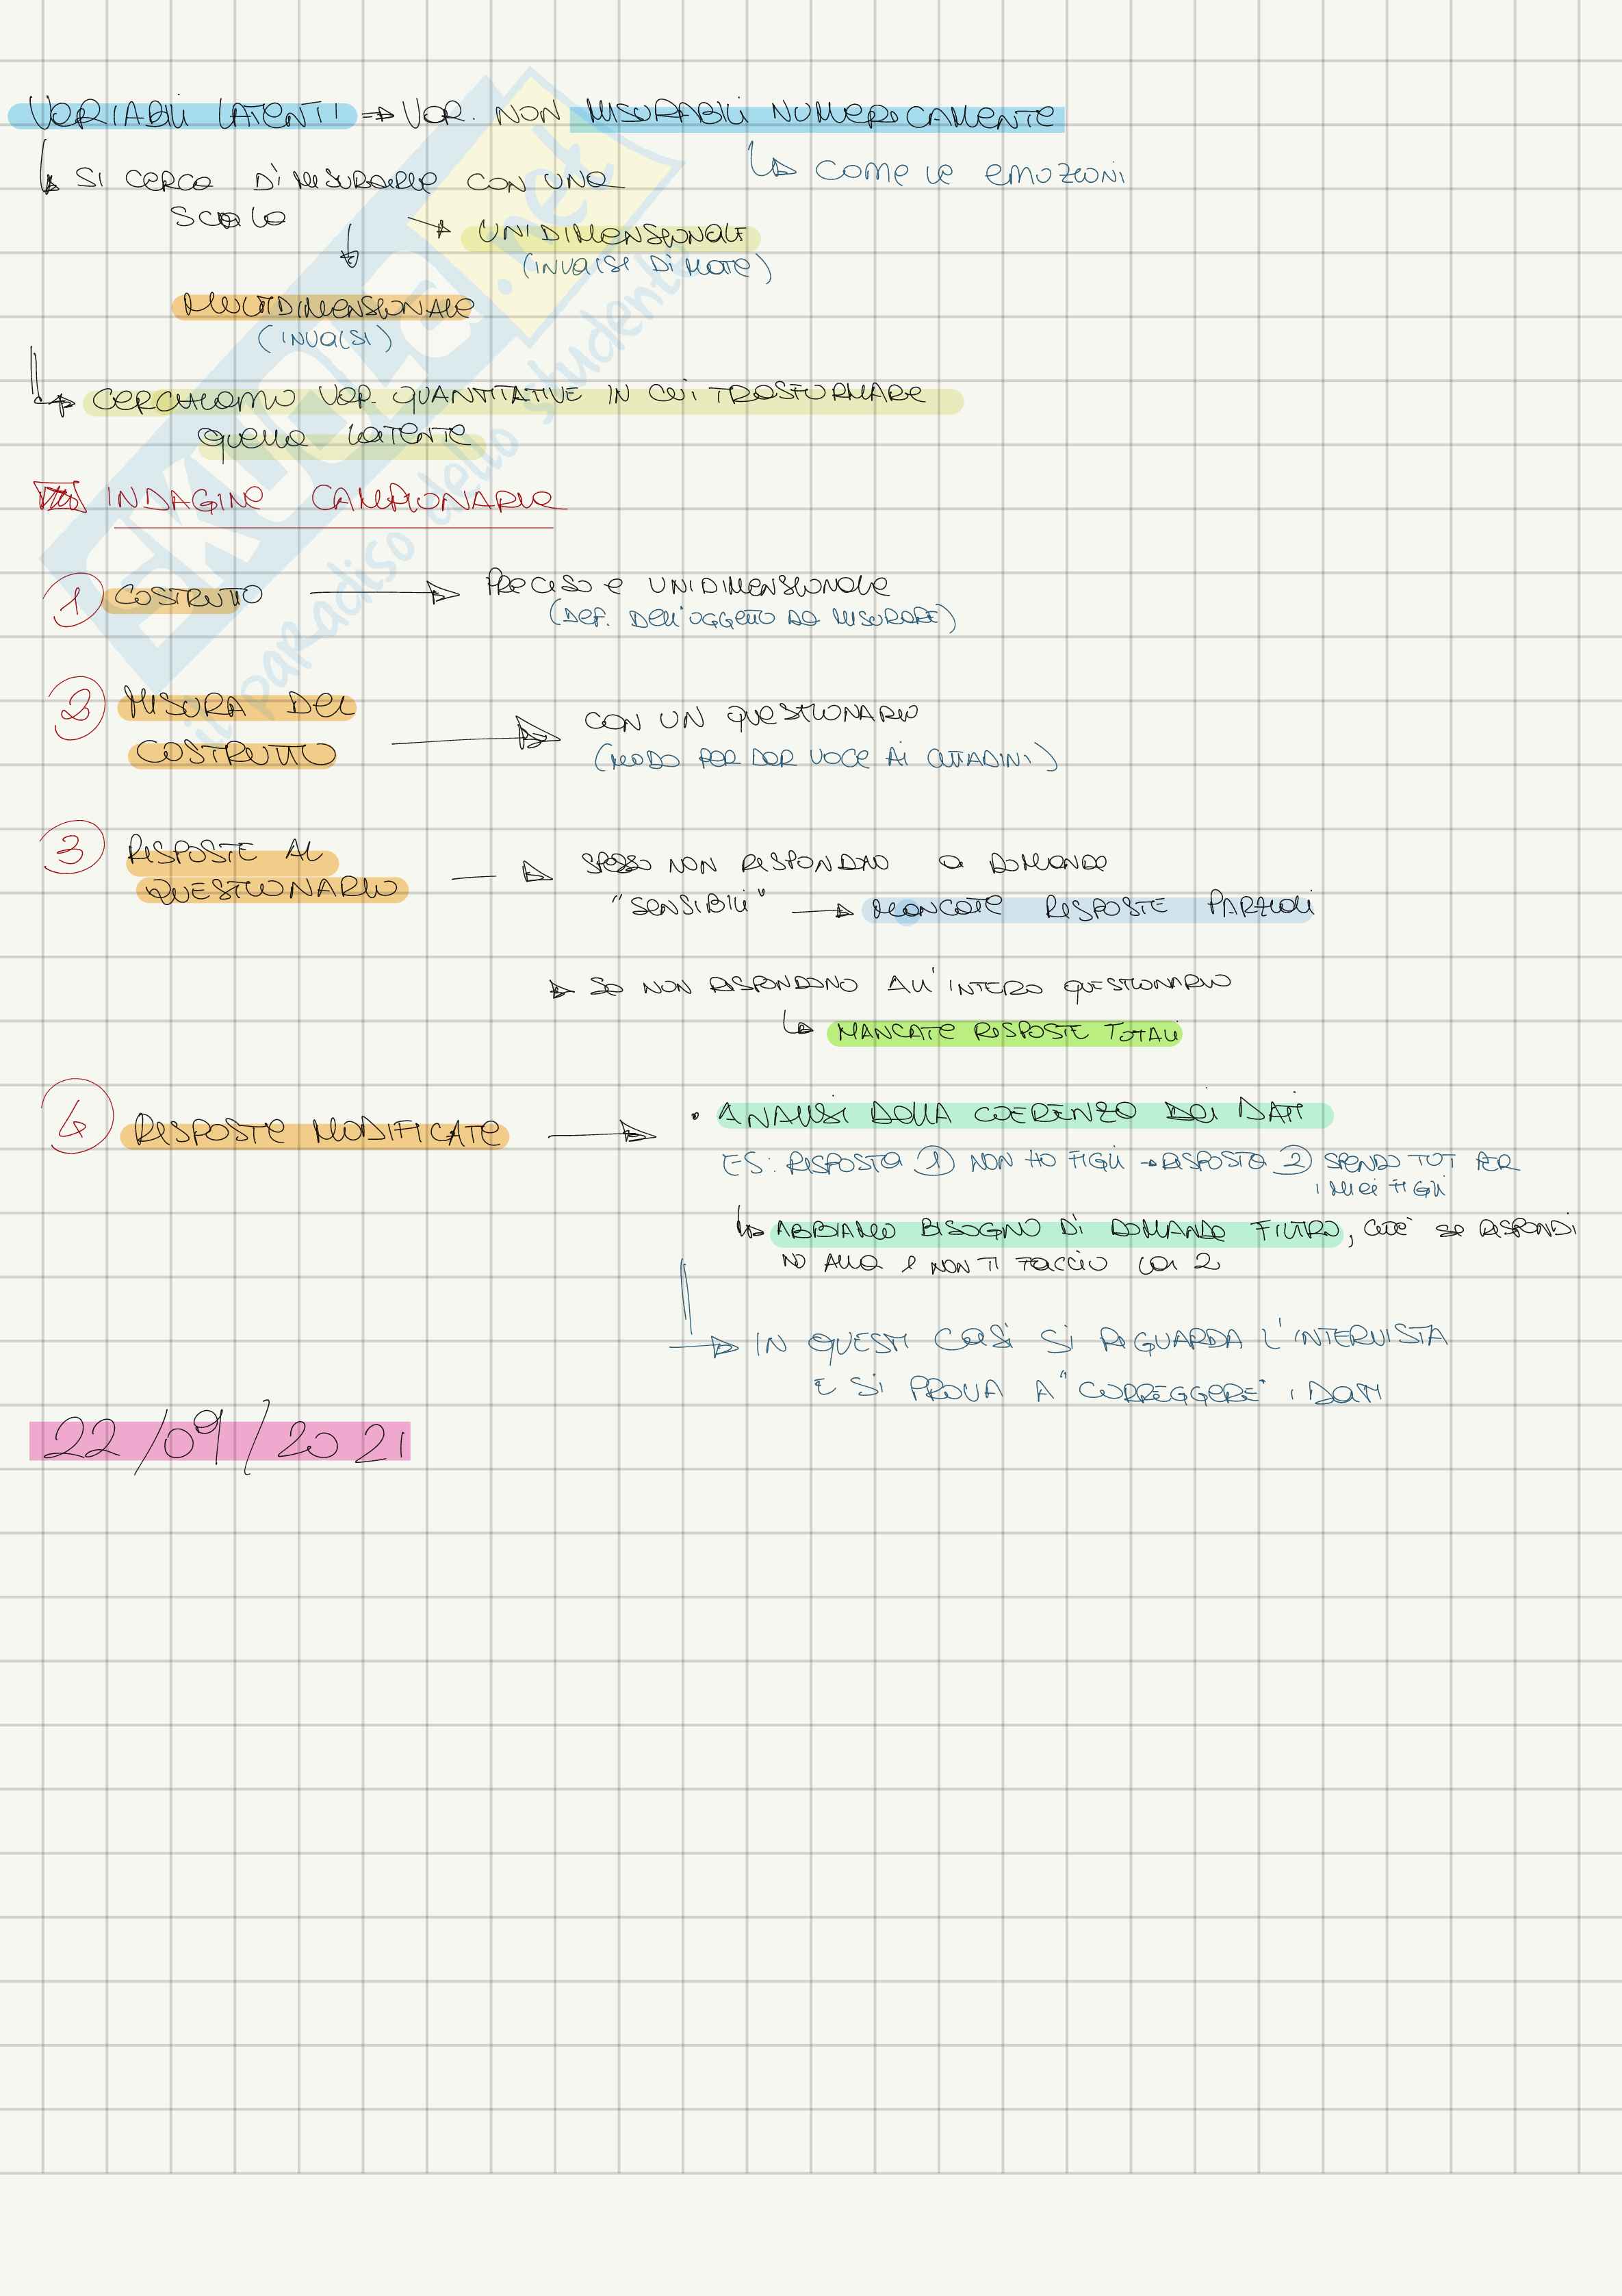 VARIABILI LATENTI => VAR. NON MISURABILI NUMERICAMENTE
↳ SI CERCA DI MISURARLE CON UNA
↳ COME LE EMOZIONI
SCALA
→ UNIDIMENSIONALE
(INVALSI DI MATE)
MULTIDIMENSIONALE
(INVALSI)
↳ CERCHIAMO VAR. QUANTITATIVE IN CUI TRASFORMARE
QUELLA LATENTE
INDAGINE CAMPIONARIE
1 COSTRUTTO → PRECISO E UNIDIMENSIONALE
(DEF. DELL'OGGETTO DA MISURARE)
2 MISURA DEL
COSTRUTTO → CON UN QUESTIONARIO
(MODO PER DAR VOCE AI CITTADINI)
3 RISPOSTE AL
QUESTIONARIO → SPESSO NON RISPONDONO A DOMANDE
"SENSIBILI" → MANCATE RISPOSTE PARZIALI
→ SE NON RISPONDONO ALL'INTERO QUESTIONARIO
↳ MANCATE RISPOSTE TOTALI
4 RISPOSTE MODIFICATE → • ANALISI DELLA COERENZA DEI DATI
ES: RISPOSTA 1) NON HO FIGLI → RISPOSTA 2) SPENDO TOT PER
I MIEI FIGLI
↳ ABBIAMO BISOGNO DI DOMANDE FILTRO, CIOÈ SE RISPONDI
NO ALLA 1 NON TI FACCIO LA 2
→ IN QUESTI CASI SI RIGUARDA L'INTERVISTA
E SI PROVA A "CORREGGERE" I DATI
22/09/2021
SKUOLA.net
il paradiso dello studente